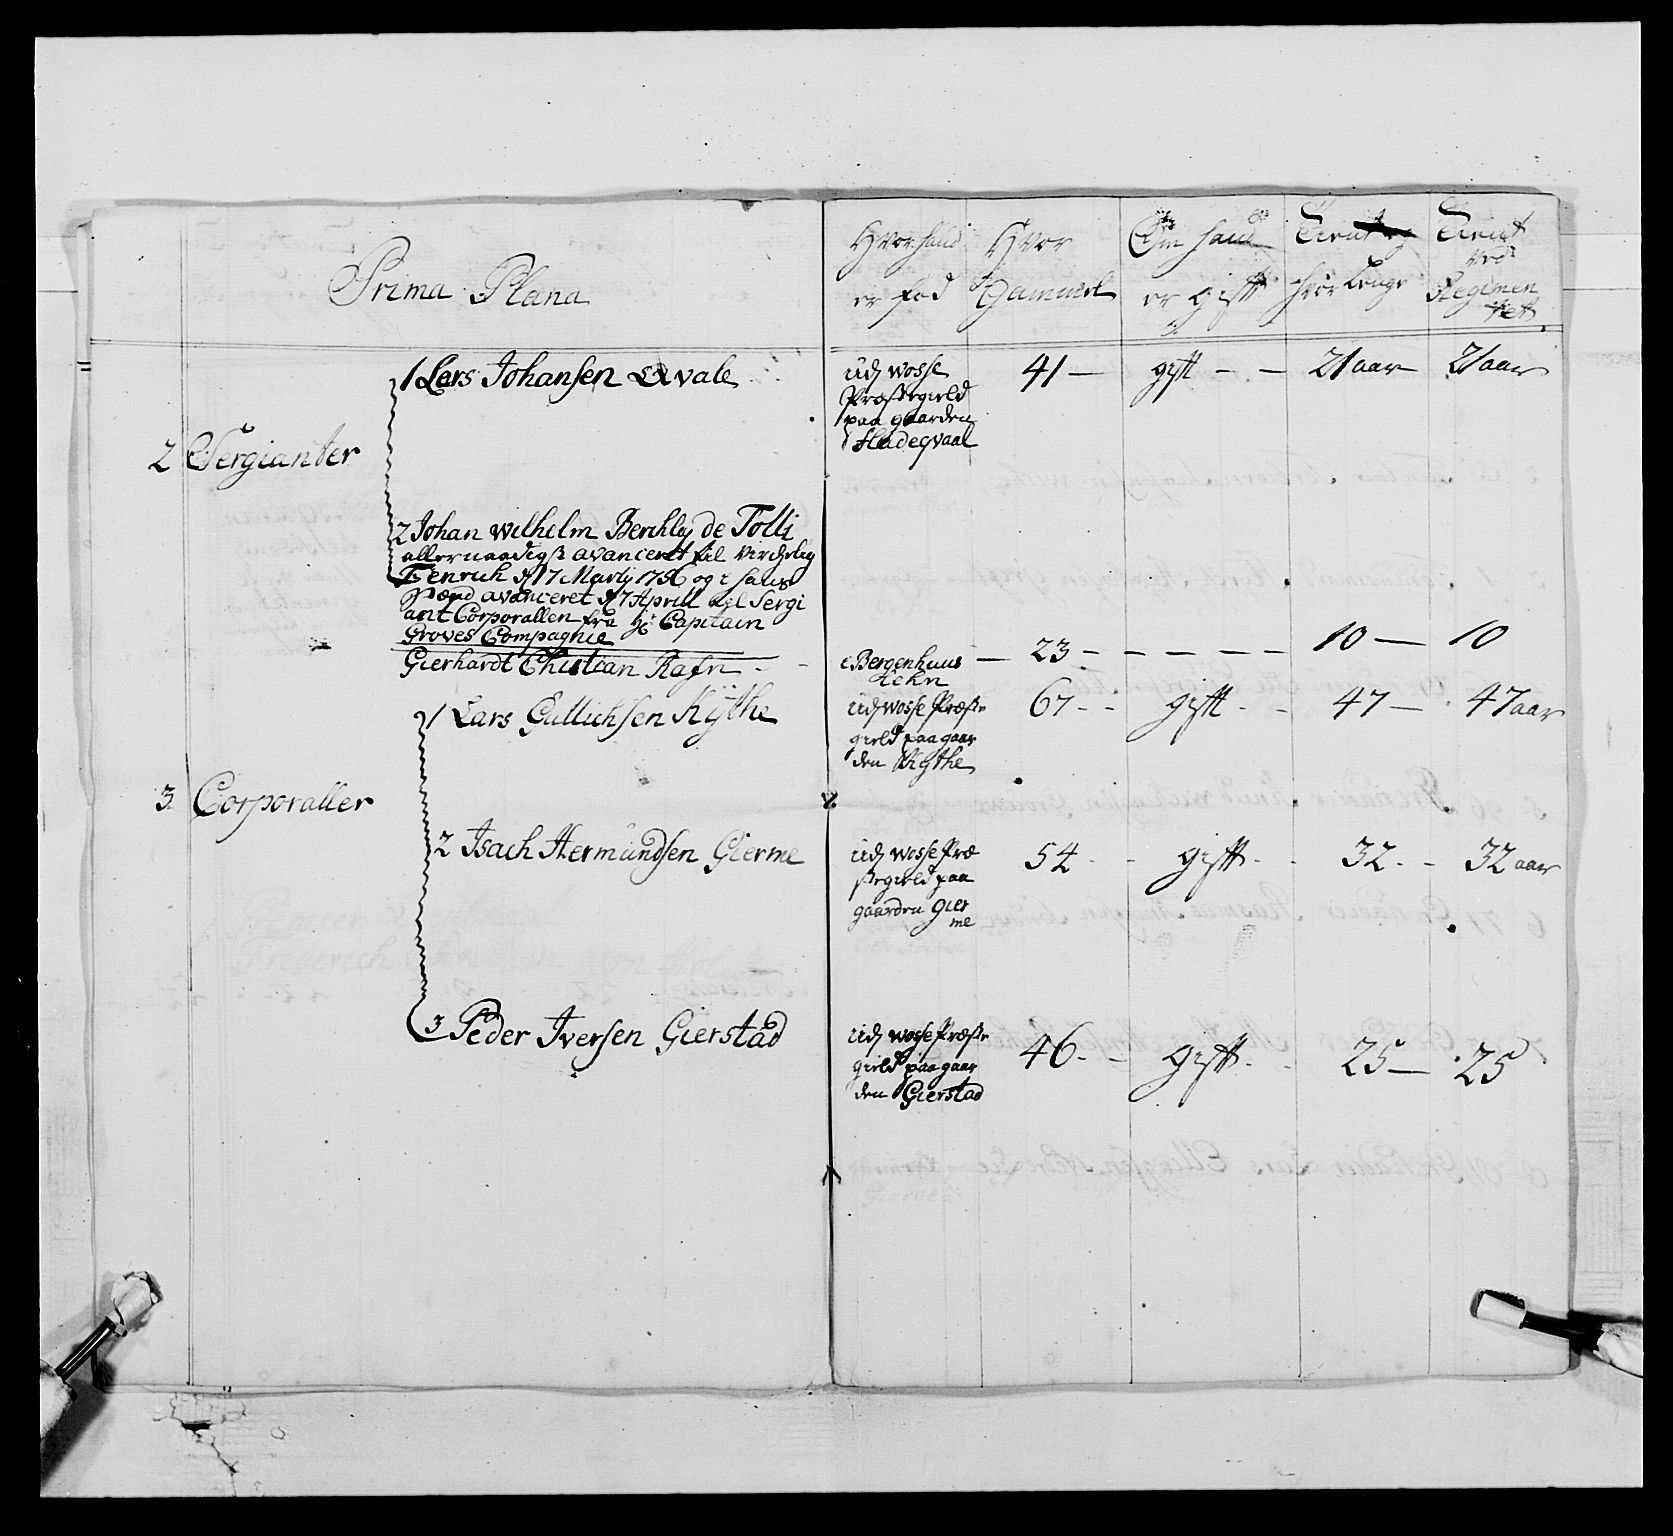 Prima Plana
Hvor hand er fød
Hvor Gammel
Om hand er gifft
Tient og hvor lenge
Tient ved Regimentett
2 Sergianter
1 Lars Johansen Qvale
udj Wosse Præstegield paa gaarden Hadeqvaal
41 — gift - - 21 aar — 21 aar
2 Johan Wilhelm Berchley de Tolli
allernaadigst avanceret til Virchelig
Fenrich d 17 Martij 1756 og i hans
Sted avanceret d 7 Aprill til Sergi
ant Corporallen fra Hr Capitain
Groves Compagnie
Gierhardt Christian Rafn - -
Bergenhuus Lehn — 23 - - - - - 10 — 10
3 Corporaller
1 Lars Gullichsen Kÿthe
udj Wosse Præste
gield paa gaar
den Kythe
67 - - gift - - 47 — 47 aar
2 Isach Hermundsen Gierme
udj Wosse Præ
stegield paa
gaarden Gier
me
54 - - gift - - 32 - - 32 aar
3 Peder Iversen Gierstad
udj Wosse Præste
gield paa gaar
den Gierstad
46 - - gift - - 25 — 25